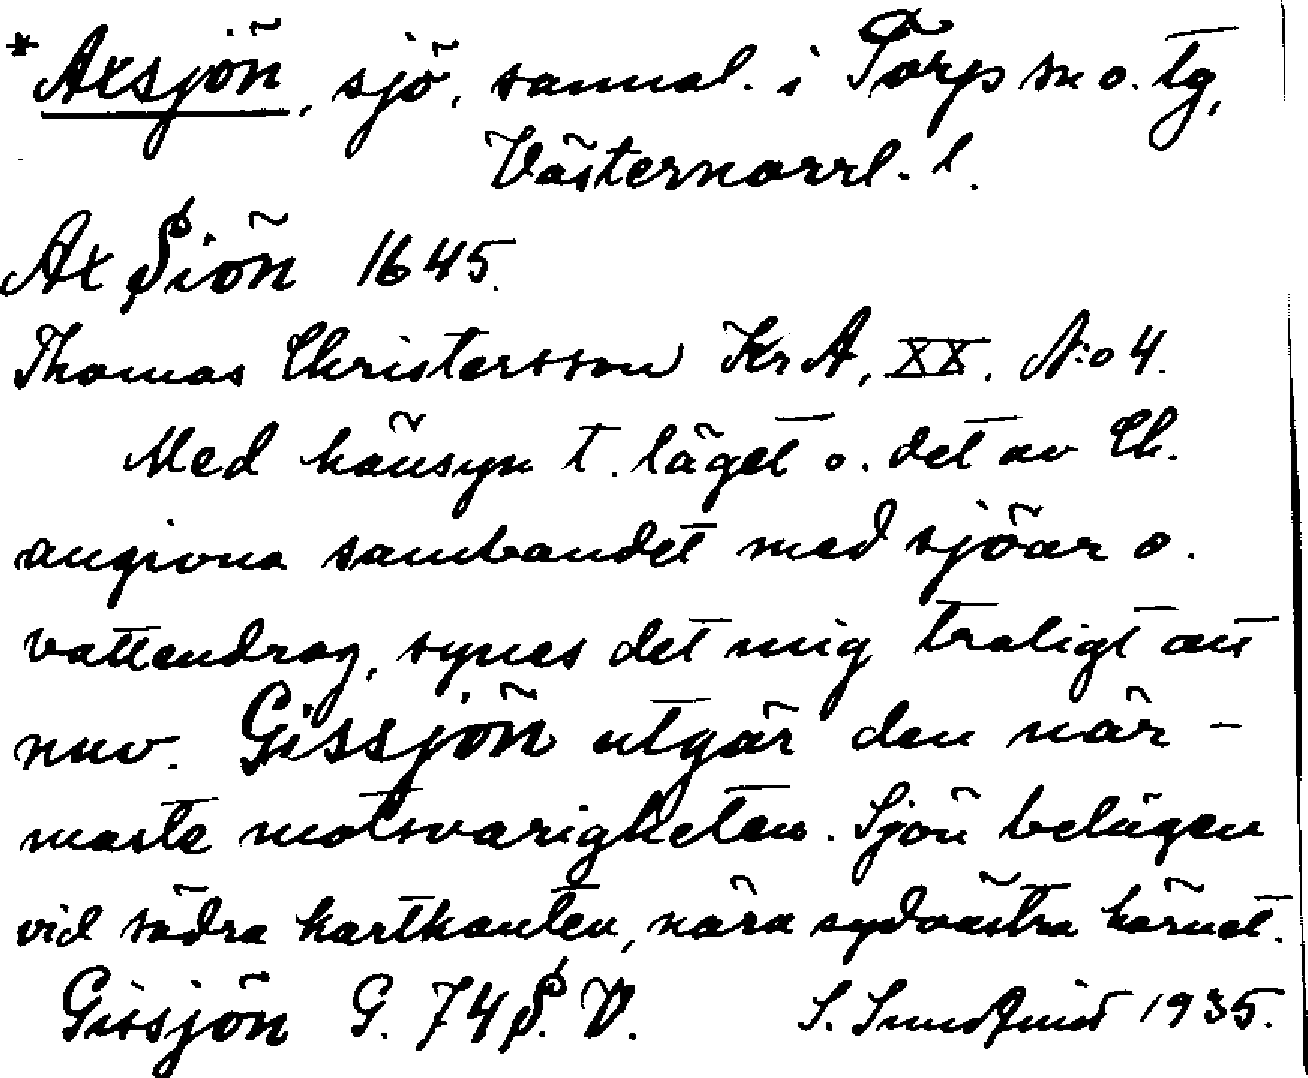 *Axsjön, sjö, samal. i Torp sn o. tg,
Västernorrl. l.
Ax Siön 1645.
Thomas Christersson Kr A, XX. N:o 4.
Med hänsyn t. läget o. det av Ch.
angivna sambandet med sjöar o.
vattendrag, synes det mig troligt att
nuv. Gissjön utgör den när-
maste motsvarigheten. Sjön belägen
vid södra kartkanten, nära sydvästra hörnet.
Gissjön G. 74 S. V. S. 1935.